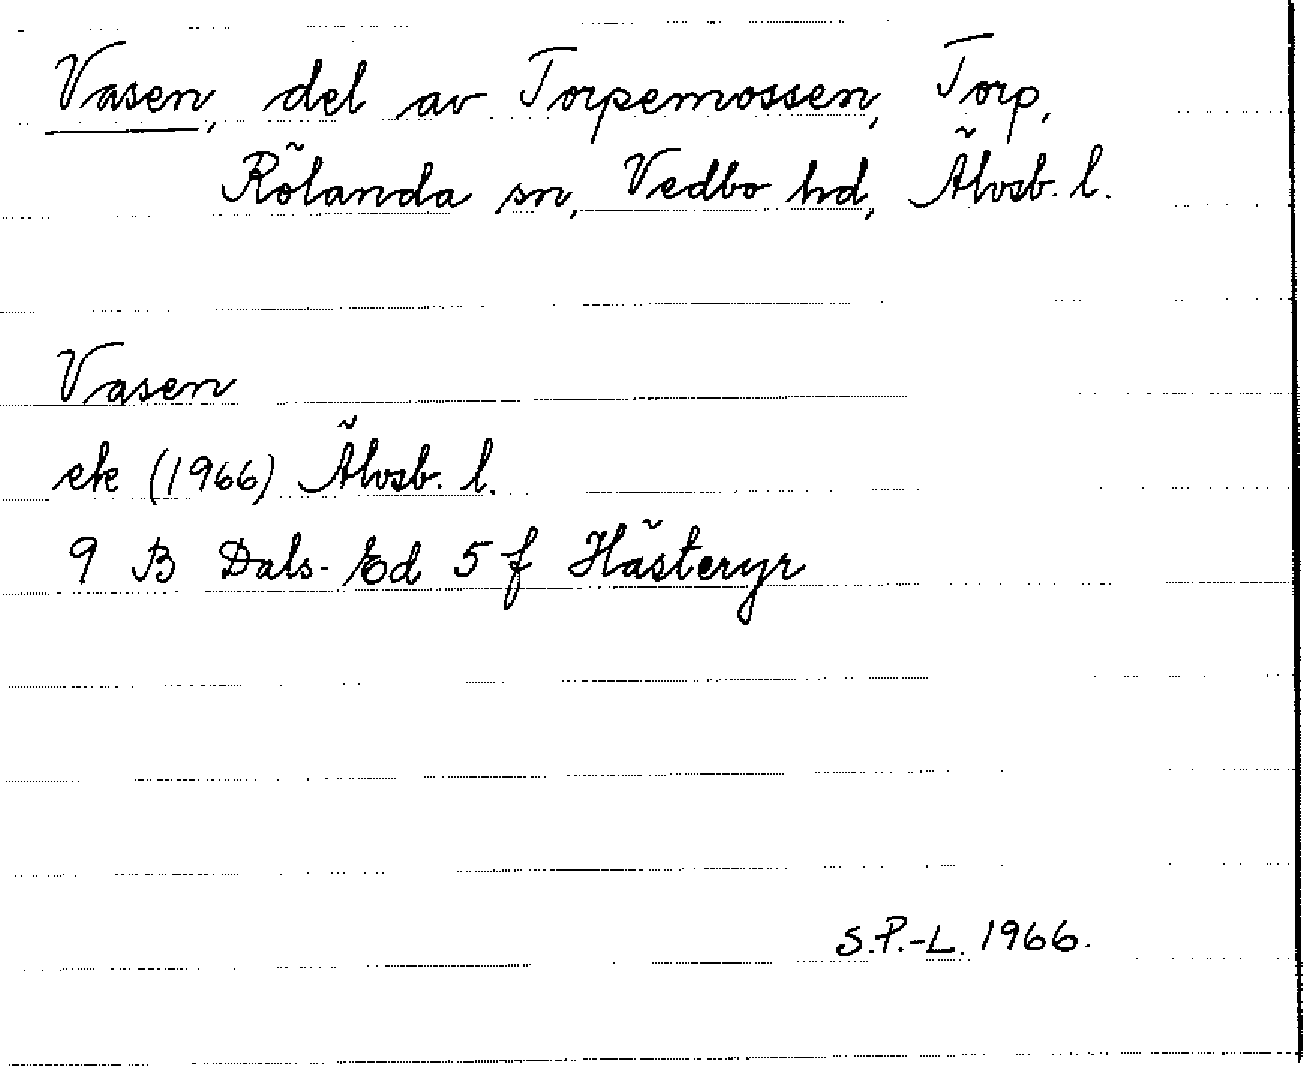 Vasen, del av Torpemossen, Torp,
Rölanda sn, Vedbo hd, Älvsb. l.
Vasen
ek (1966) Älvsb. l.
9 B Dals-Ed 5 f Hästeryr
S.P.-L. 1966.